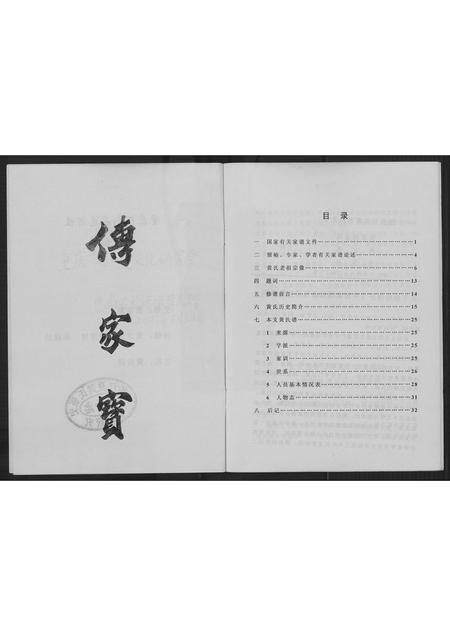 傳
家
寶
目 录
一 国家有关家谱文件……1
二 领袖、专家、学者有关家谱论述……4
三 黄氏老祖宗像……6
四 题词……13
五 修谱前言……14
六 黄氏历史简介……15
七 本支黄氏谱……25
1 来源……25
2 字派……25
3 家训……25
4 世系……26
5 人员基本情况表……28
6 人物志……31
八 后记……32